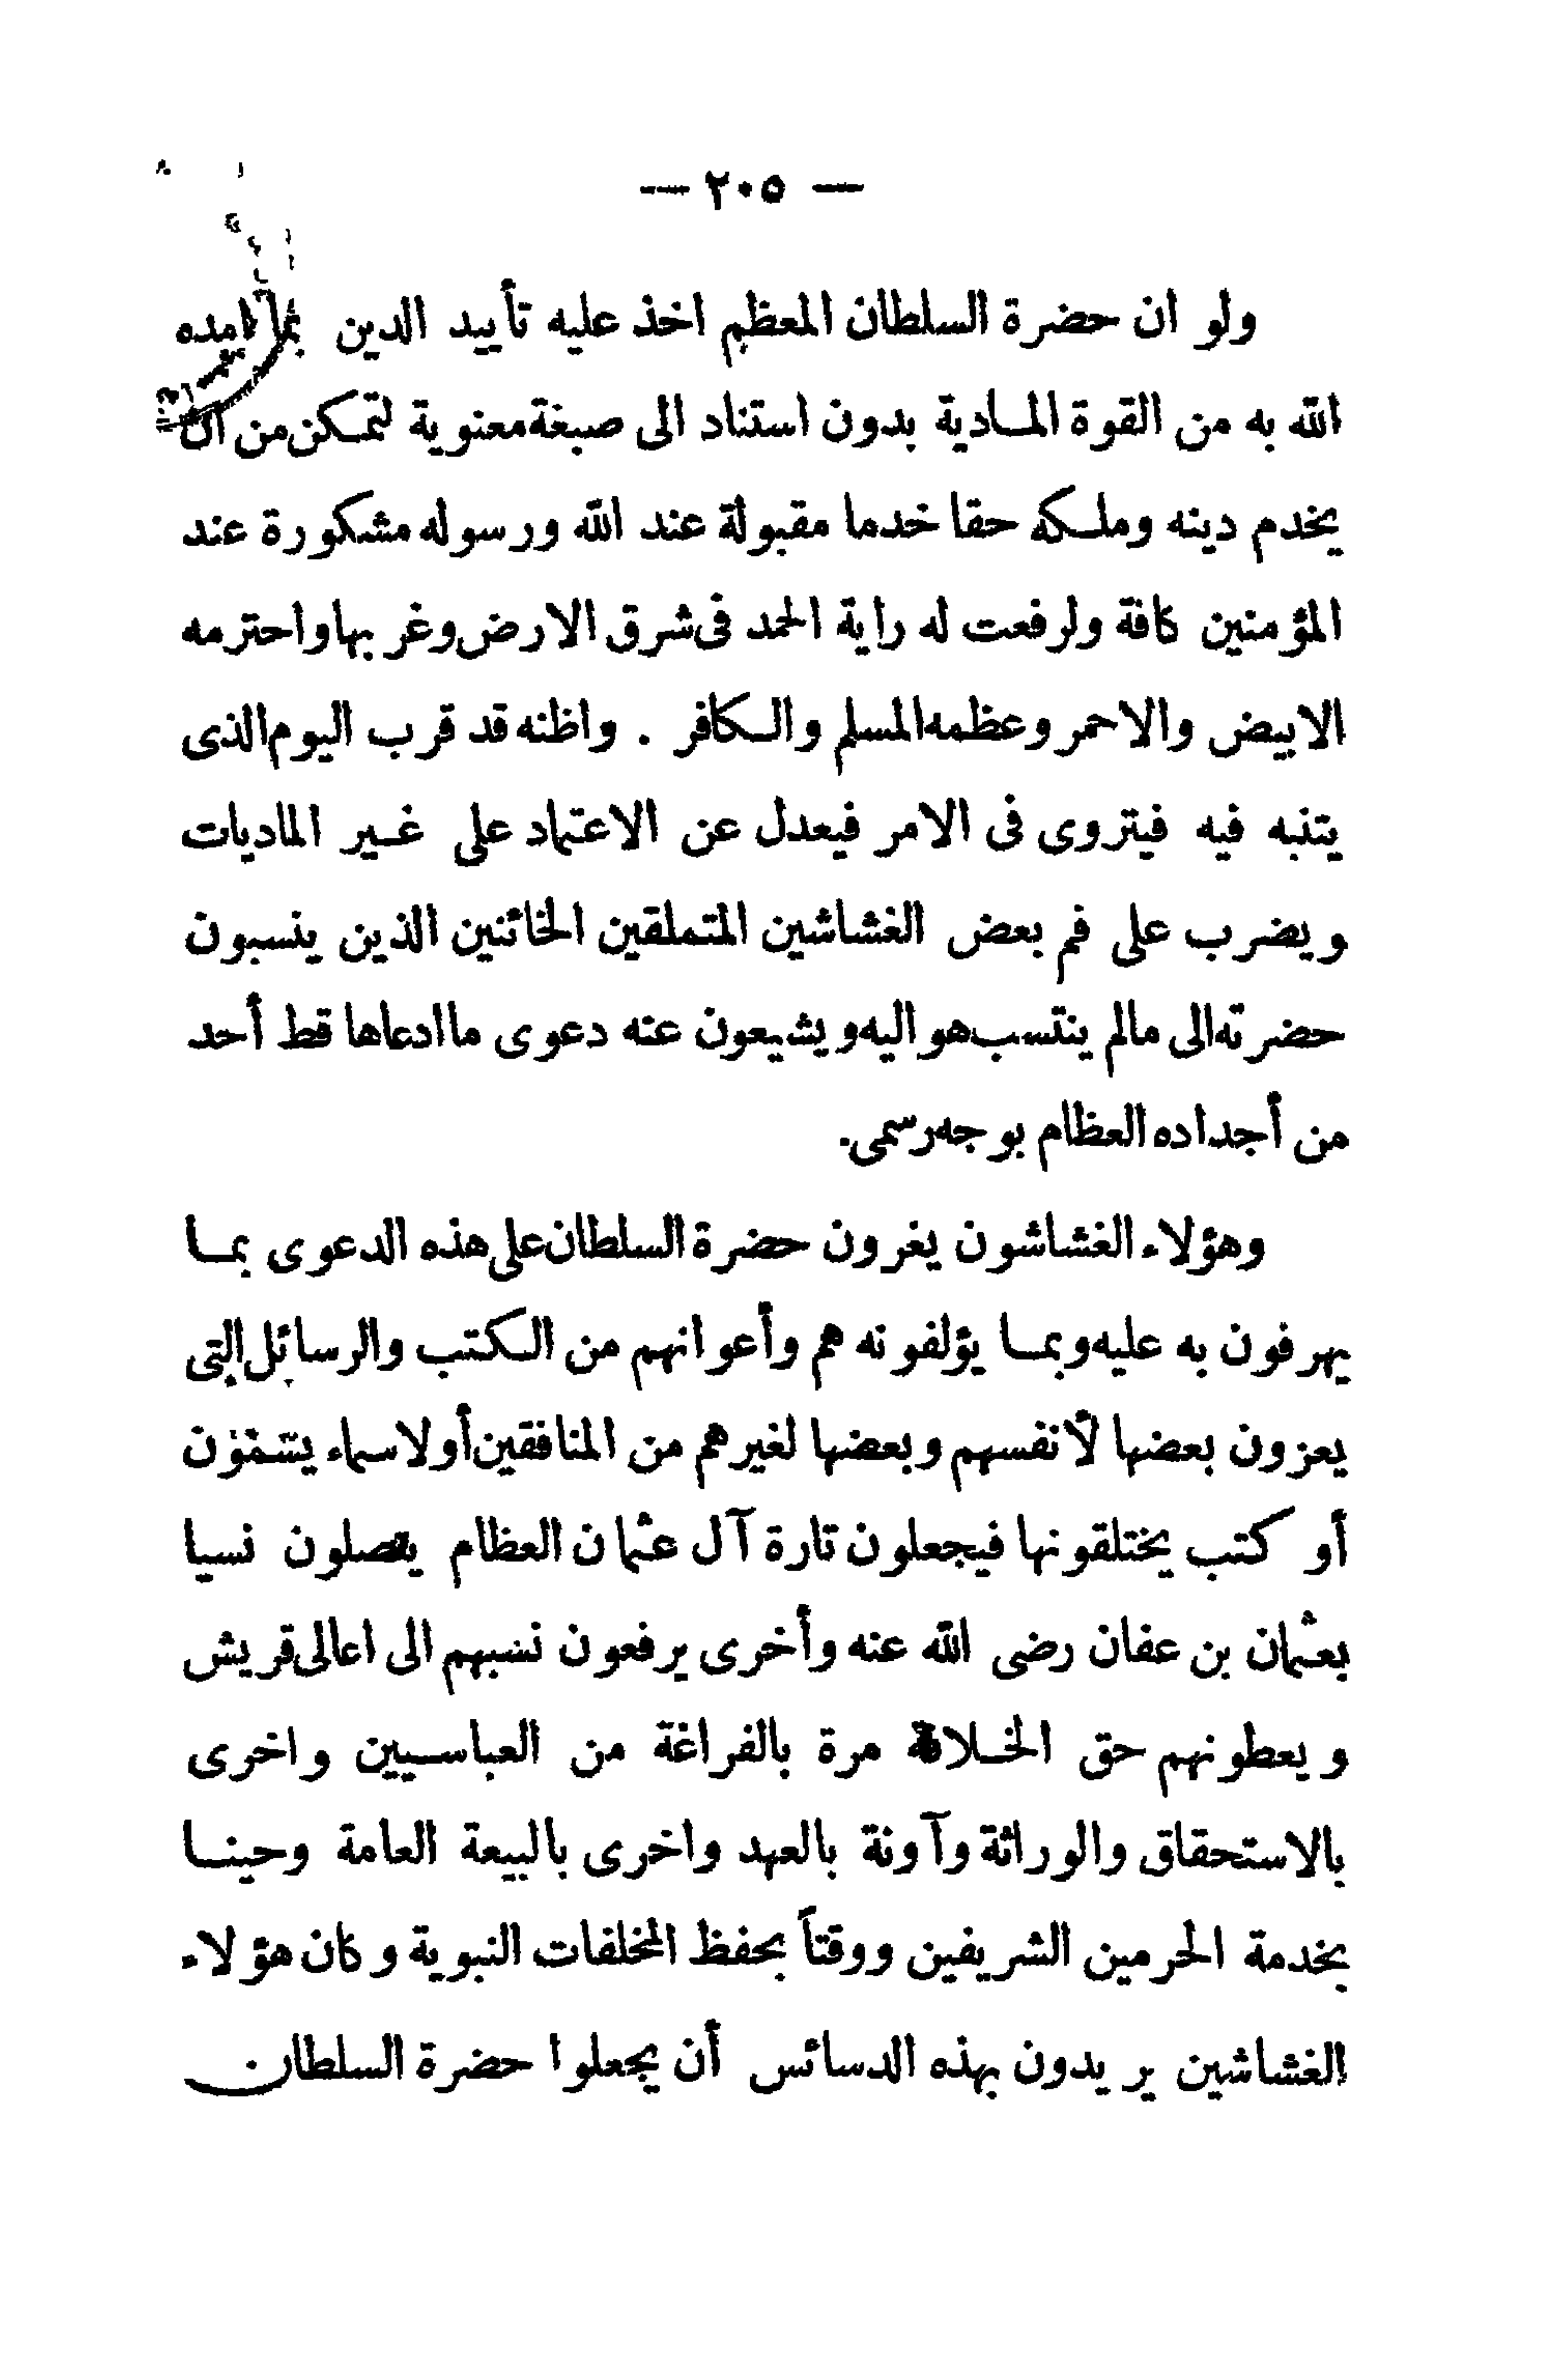 — ٢٠٥ —
ولو ان حضرة السلطان المعظم اخذ عليه تأييد الدين بما ايده
الله به من القوة المادية بدون استناد الى صبغة معنوية لتمكن من ان
يخدم دينه وملكه حقا خدما مقبولة عند الله ورسوله مشكورة عند
المؤمنين كافة ولرفعت له راية الحمد فى شرق الارض وغربها واحترمه
الابيض والاحمر وعظمه المسلم والكافر . واظنه قد قرب اليوم الذى
يتنبه فيه فيتروى فى الامر فيعدل عن الاعتماد على غير الماديات
ويضرب على فم بعض الغشاشين المتملقين الخائنين الذين ينسبون
حضرته الى مالم ينتسب هو اليه ويشيعون عنه دعوى ما ادعاها قط أحد
من أجداده العظام بوجه رسمى.
وهؤلاء الغشاشون يغرون حضرة السلطان على هذه الدعوى بما
يهرفون به عليه وبما يؤلفونه هم وأعوانهم من الكتب والرسائل التى
يعزون بعضها لأنفسهم وبعضها لغيرهم من المنافقين أو لاسماء يسمون
أو كتب يختلقونها فيجعلون تارة آل عثمان العظام يتصلون نسبا
بعثمان بن عفان رضى الله عنه وأخرى يرفعون نسبهم الى اعالى قريش
ويعطونهم حق الخلافة مرة بالفراغة من العباسيين واخرى
بالاستحقاق والوراثة وآونة بالعهد واخرى بالبيعة العامة وحينا
بخدمة الحرمين الشريفين ووقتاً بحفظ المخلفات النبوية وكان هؤلاء
الغشاشين يريدون بهذه الدسائس أن يجعلوا حضرة السلطان